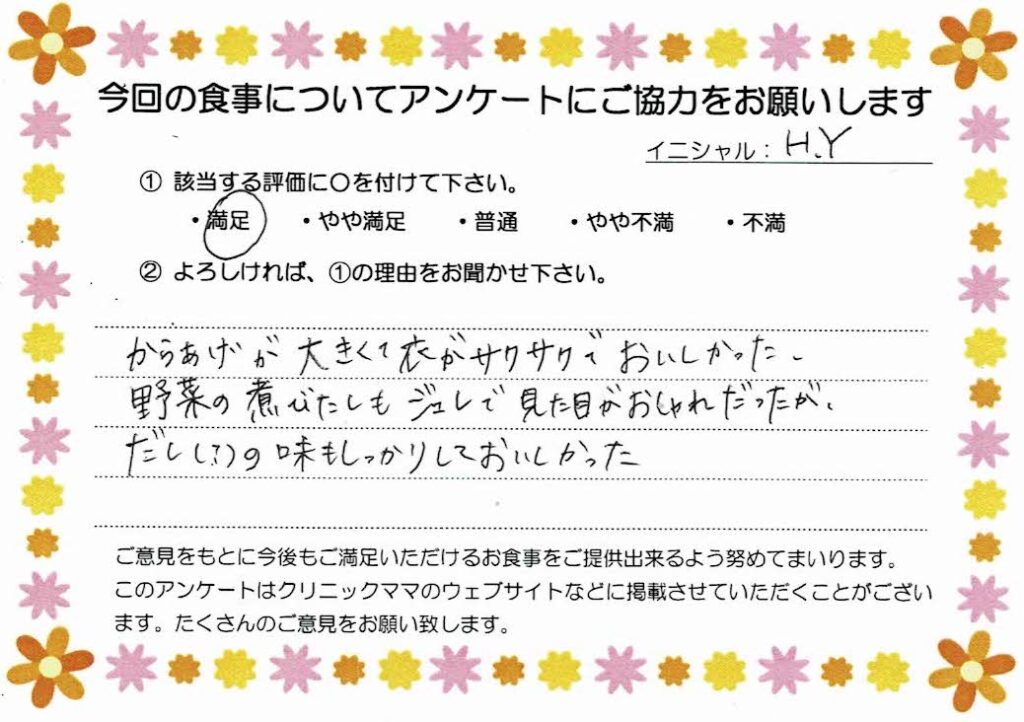 今回の食事についてアンケートにご協力をお願いします
イニシャル: H.Y
① 該当する評価に〇を付けて下さい。
・満足 ・やや満足 ・普通 ・やや不満 ・不満
② よろしければ、①の理由をお聞かせ下さい。
からあげが大きくて衣がサクサクでおいしかった、
野菜の煮びたしもジュレで見た目がおしゃれだったが、
だし(?)の味もしっかりしておいしかった
ご意見をもとに今後もご満足いただけるお食事をご提供出来るよう努めてまいります。
このアンケートはクリニックママのウェブサイトなどに掲載させていただくことがござい
ます。たくさんのご意見をお願い致します。